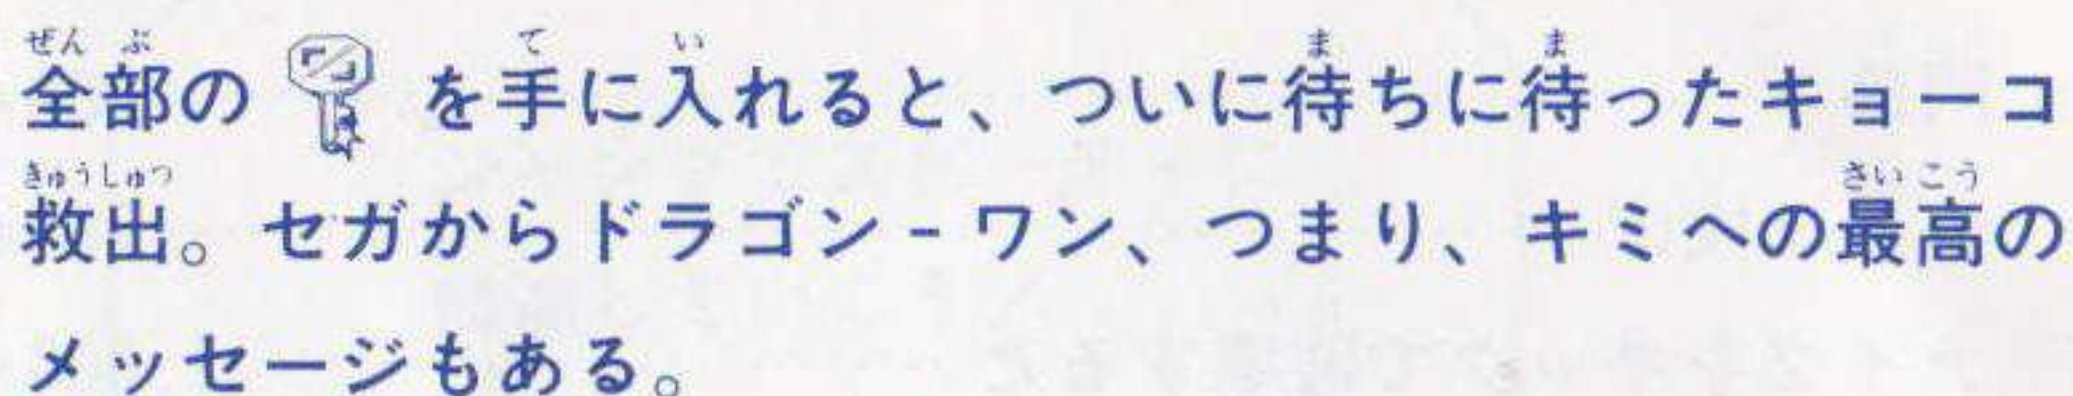 全部の を手に入れると、ついに待ちに待ったキョーコ
救出。セガからドラゴン-ワン、つまり、キミへの最高の
メッセージもある。